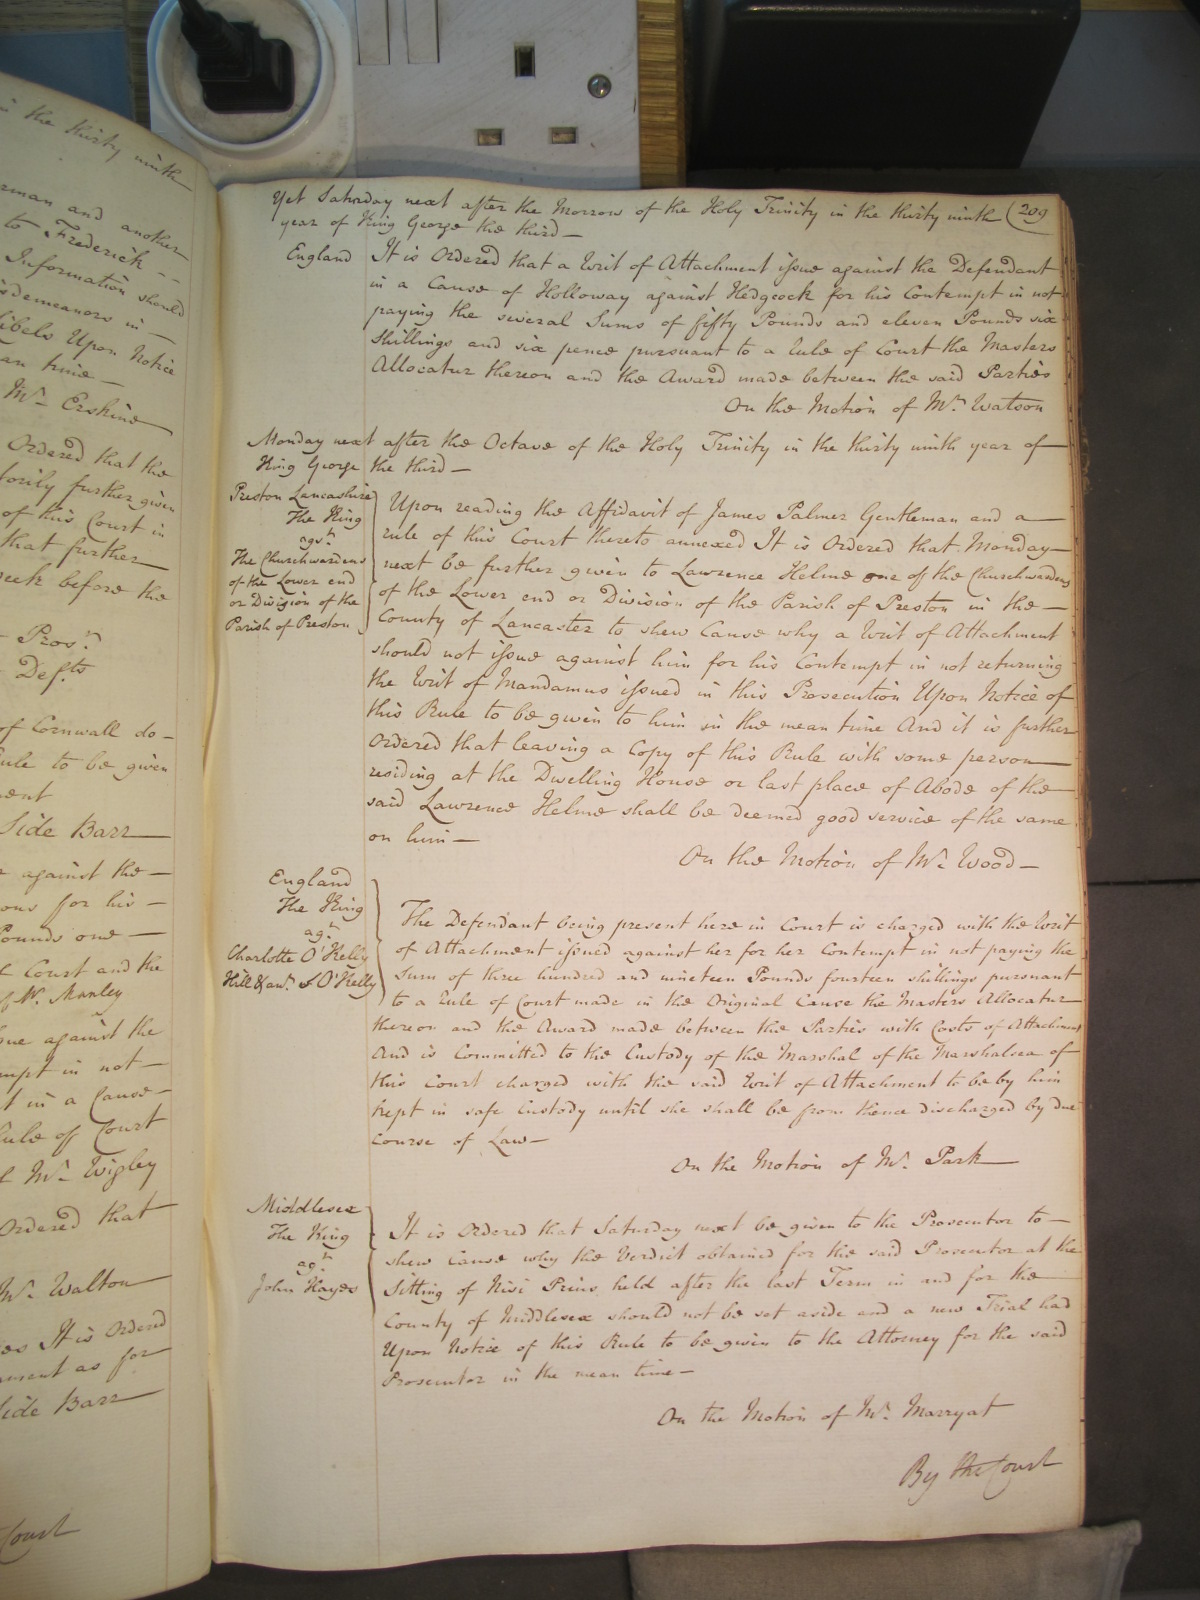 in the thirty ninth
rman and another
to Frederick - -
Information should
isdemeanors in -
Libels Upon Notice
an time -
Mr. Erskine
Ordered that the
torily further given
of this Court in
that further
week before the
Prosr.
Defts.
of Cornwall do -
Rule to be given
ment
Side Barr
against the -
ons for his -
Pounds one -
Court and the
Mr. Manley
sue against the
empt in not -
t in a Cause -
Rule of Court
Mr. Wigley
Ordered that
Mr. Walton
es It is Ordered
ament as for
Side Barr
Court
Yet Saturday next after the Morrow of the Holy Trinity in the thirty ninth (209
year of King George the third -
England It is Ordered that a Writ of Attachment issue against the Defendant
in a Cause of Holloway against Hedgcock for his Contempt in not
paying the several Sums of fifty Pounds and eleven Pounds six
Shillings and six pence pursuant to a Rule of Court the Masters
Allocatur thereon and the Award made between the said Parties
On the Motion of Mr. Watson
Monday next after the Octave of the Holy Trinity in the thirty ninth year of
King George the third -
Preston Lancashire
The King
agt.
The Churchwardens
of the Lower end
or Division of the
Parish of Preston
Upon reading the Affidavit of James Palmer Gentleman and a
rule of this Court thereto annexed It is Ordered that Monday
next be further given to Lawrence Helme one of the Churchwardens
of the Lower end or Division of the Parish of Preston in the -
County of Lancaster to shew Cause why a Writ of Attachment
should not issue against him for his Contempt in not returning
the Writ of Mandamus issued in this Prosecution Upon Notice of
this Rule to be given to him in the mean time And it is further
Ordered that leaving a Copy of this Rule with some person
residing at the Dwelling House or last place of Abode of the
said Lawrence Helme shall be deemed good service of the same
on him -
On the Motion of Mr. Wood -
England
The King
agt.
Charlotte O'Kelly
Hill & anr. v O'Kelly
The Defendant being present here in Court is charged with the Writ
of Attachment issued against her for her Contempt in not paying the
Sum of three hundred and nineteen Pounds fourteen shillings pursuant
to a Rule of Court made in the Original Cause the Masters Allocatur
thereon and the Award made between the Parties with Costs of Attachment
And is Committed to the Custody of the Marshal of the Marshalsea of
this Court charged with the said Writ of Attachment to be by him
kept in safe Custody until she shall be from thence discharged by due
Course of Law -
On the Motion of Mr. Park
Middlesex
The King
agt.
John Hayes
It is Ordered that Saturday next be given to the Prosecutor to -
shew Cause why the Verdict obtained for the said Prosecutor at the
Sitting of Nisi Prius held after the last Term in and for the
County of Middlesex should not be set aside and a new Trial had
Upon Notice of this Rule to be given to the Attorney for the said
Prosecutor in the mean time -
On the Motion of Mr. Marryat
By the Court